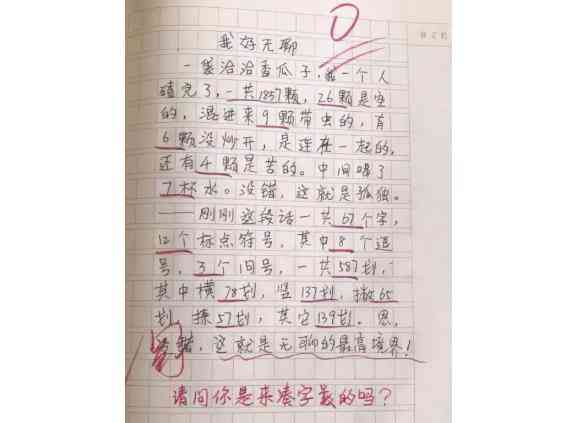 0
我好无聊
一袋洽洽香瓜子,我一个人
嗑完了,一共1857颗,26颗是空
的,混进来9颗带虫的,有
6颗没炒开,是连在一起的,
还有4颗是苦的。中间喝了
7杯水。没错,这就是孤独。
——刚刚这段话一共67个字,
12个标点符号,其中8个逗
号,3个句号,一共587划,
其中横78划,竖137划,撇65
划,捺57划,其它139划。恩,
没错,这就是无聊的最高境界!
请问你是来凑字数的吗?